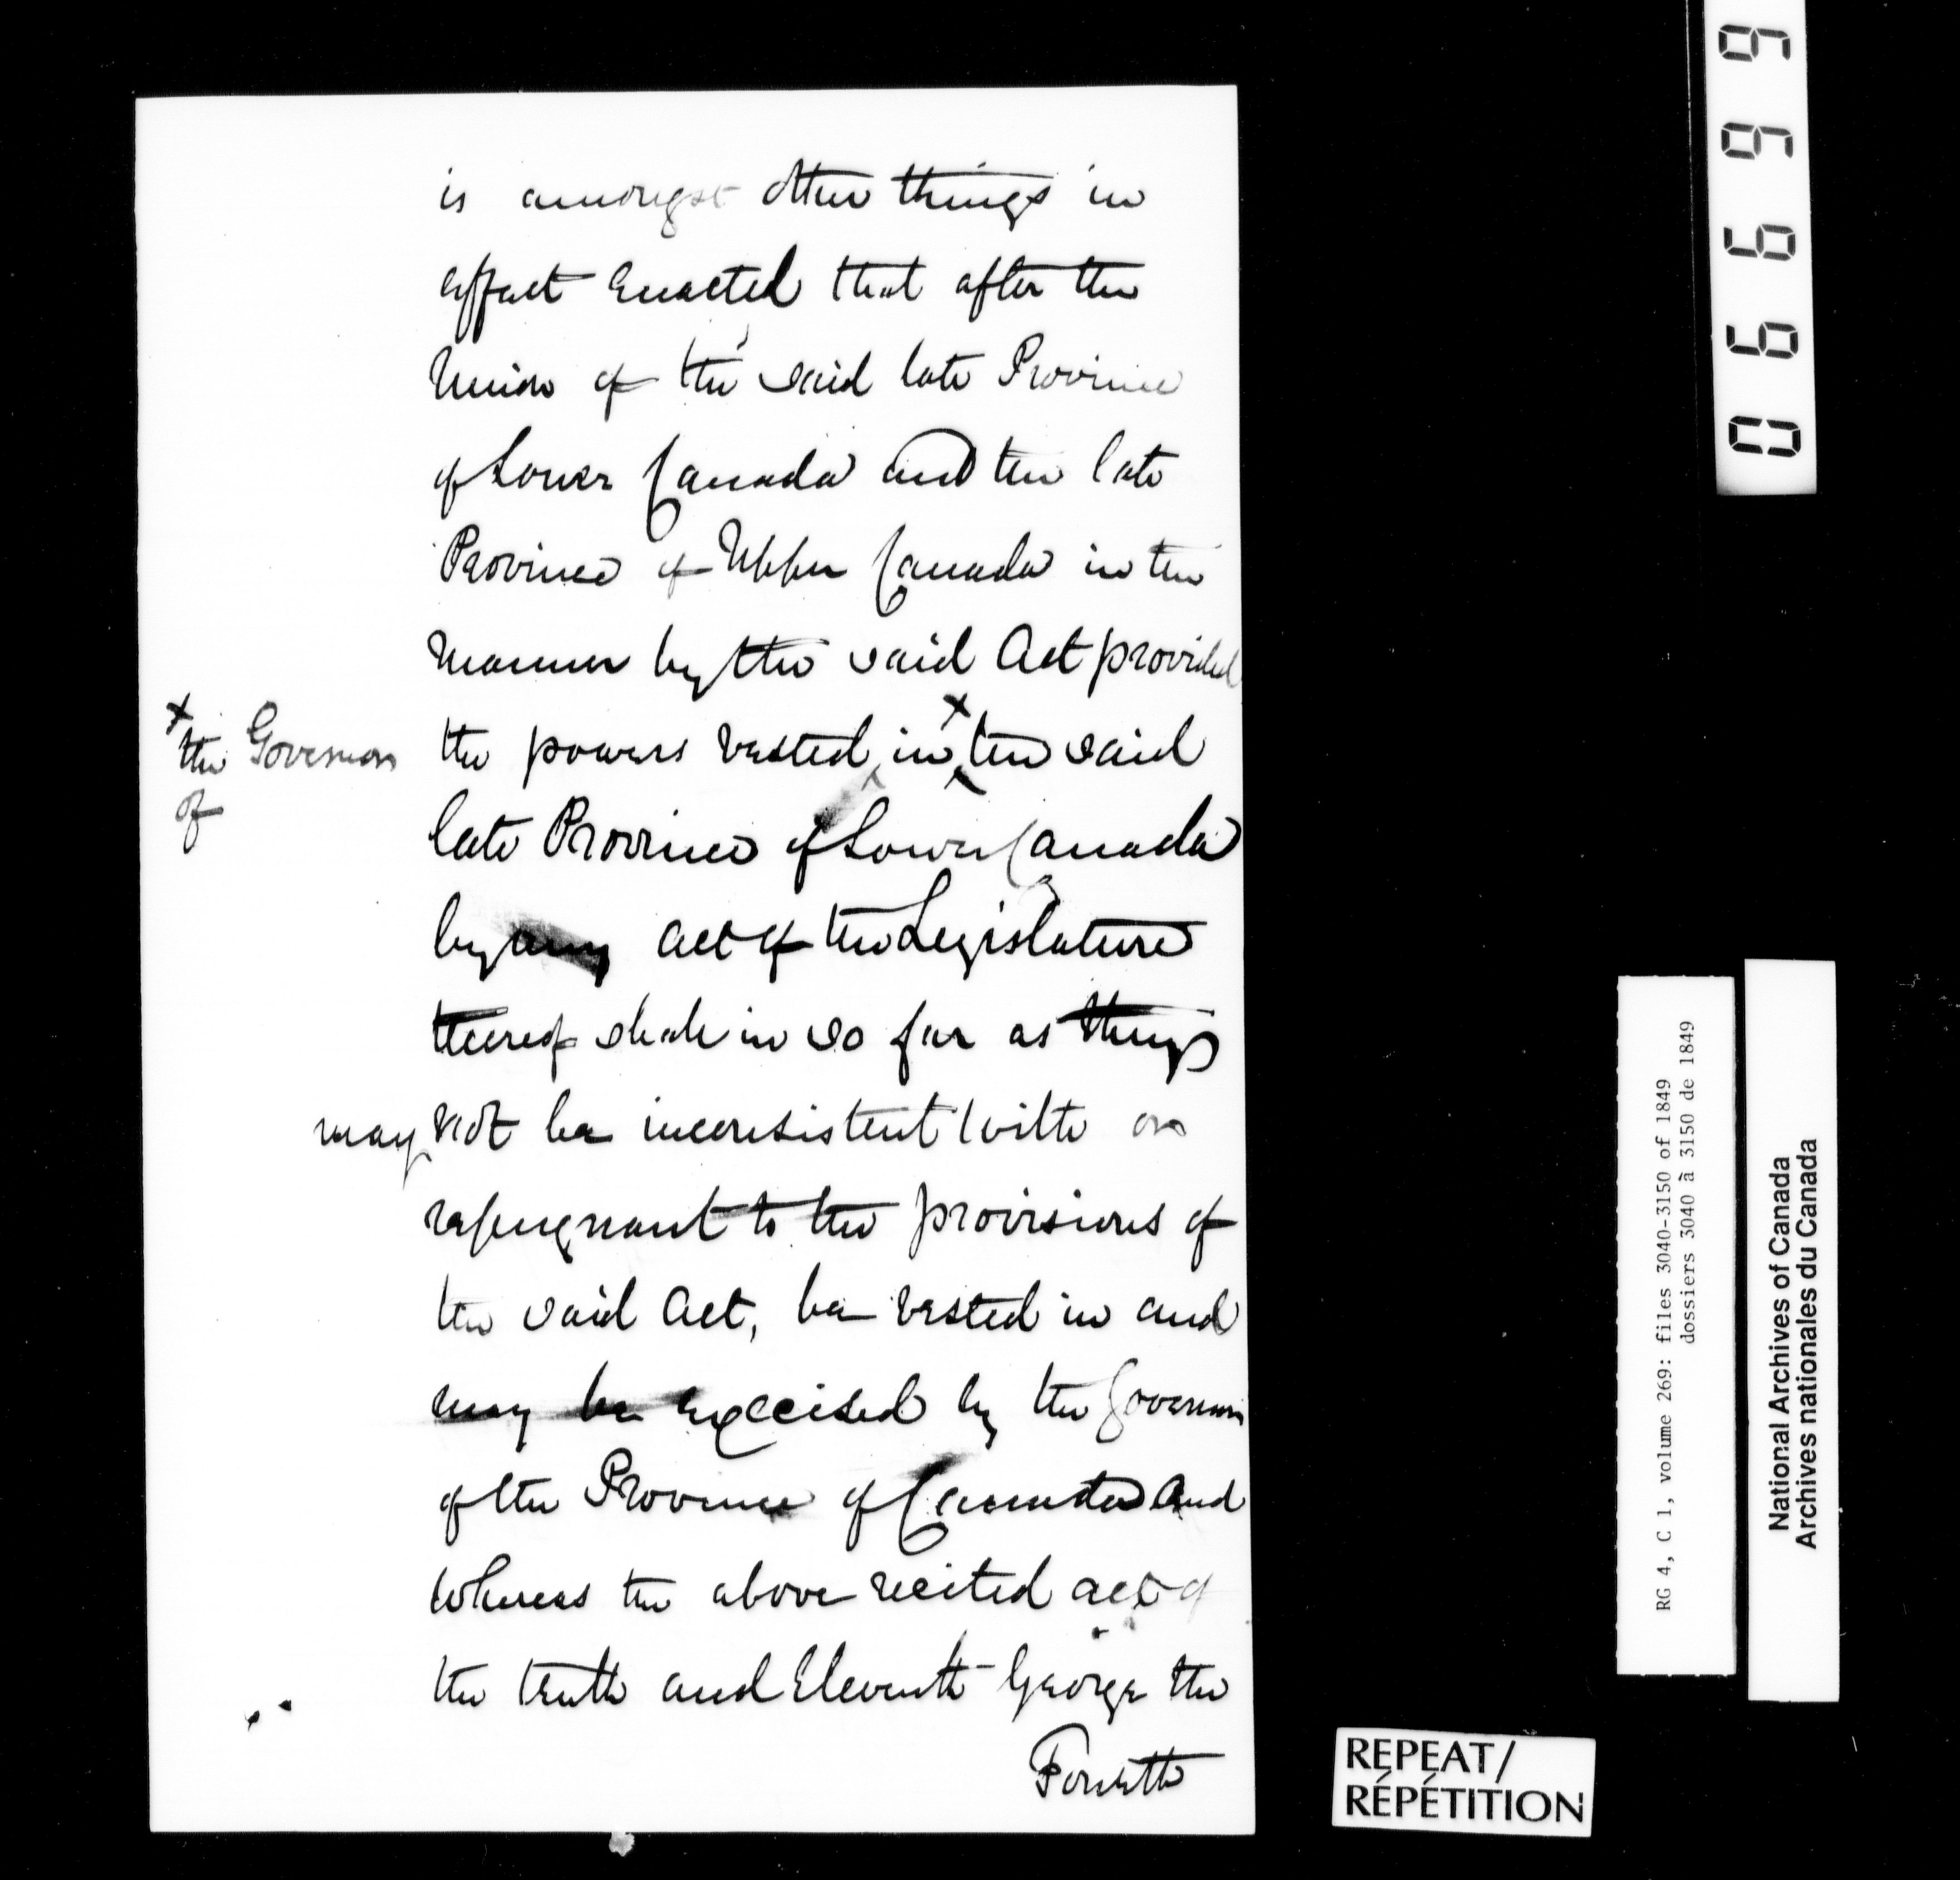 is amongst other things in
effect enacted that after the
Union of the said late Province
of Lower Canada and the late
Province of Upper Canada in the
manner by the said Act provided
the powers vested in x the said
x the Governor
of
late Province of Lower Canada
by any Act of the Legislature
thereof shall in so far as they
may not be inconsistent with or
repugnant to the provisions of
the said Act, be vested in and
may be exercised by the Governor
of the Province of Canada and
Whereas the above recited act of
the tenth and Eleventh George the
Fourth
06699
RG 4, C 1, volume 269: files 3040-3150 of 1849
dossiers 3040 à 3150 de 1849
National Archives of Canada
Archives nationales du Canada
REPEAT/
RÉPÉTITION